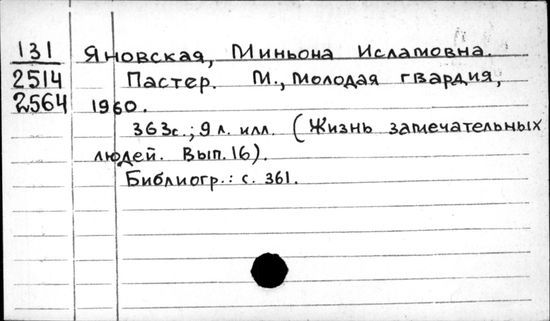 131 Яновская, Миньона Исламовна.
2514 Пастер. М., Молодая гвардия,
2564 1960.
363с.; 9 л. илл. (Жизнь замечательных
людей. Вып. 16).
Библиогр.: с. 361.